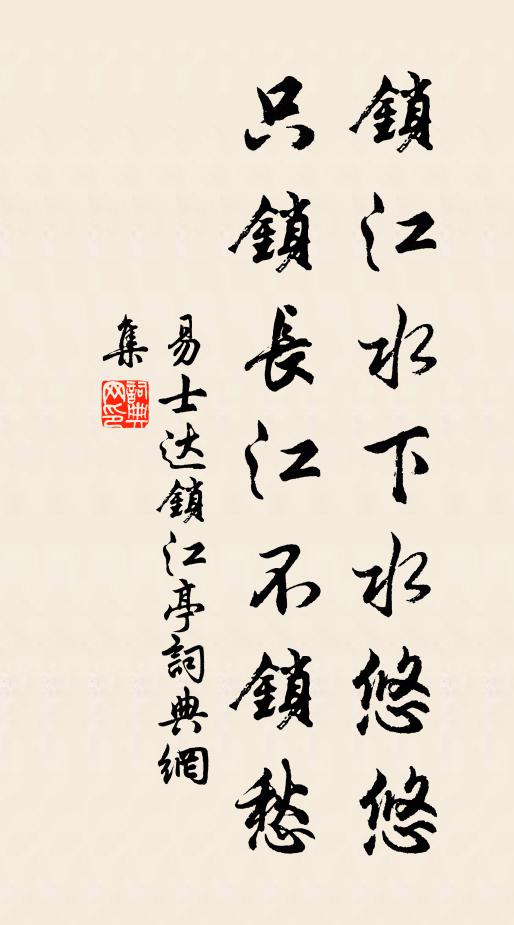 鎖江水下水悠悠
只鎖長江不鎖愁
易士达鎖江亭詞典網
集
詞典
网印